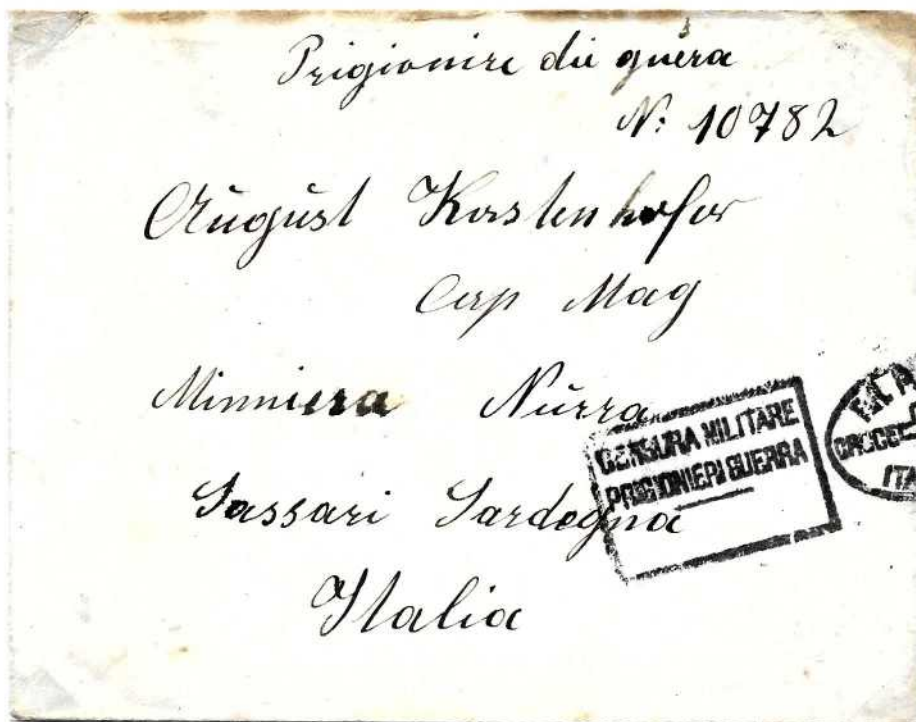 Prigionire die guera
N: 10782
Aŭgŭst Kostenhofer
Cap Mag
Minniera Nŭrra
Sassari Sardegna
Italia
CENSURA MILITARE
PRIGIONIERI GUERRA
CROCE
ITA